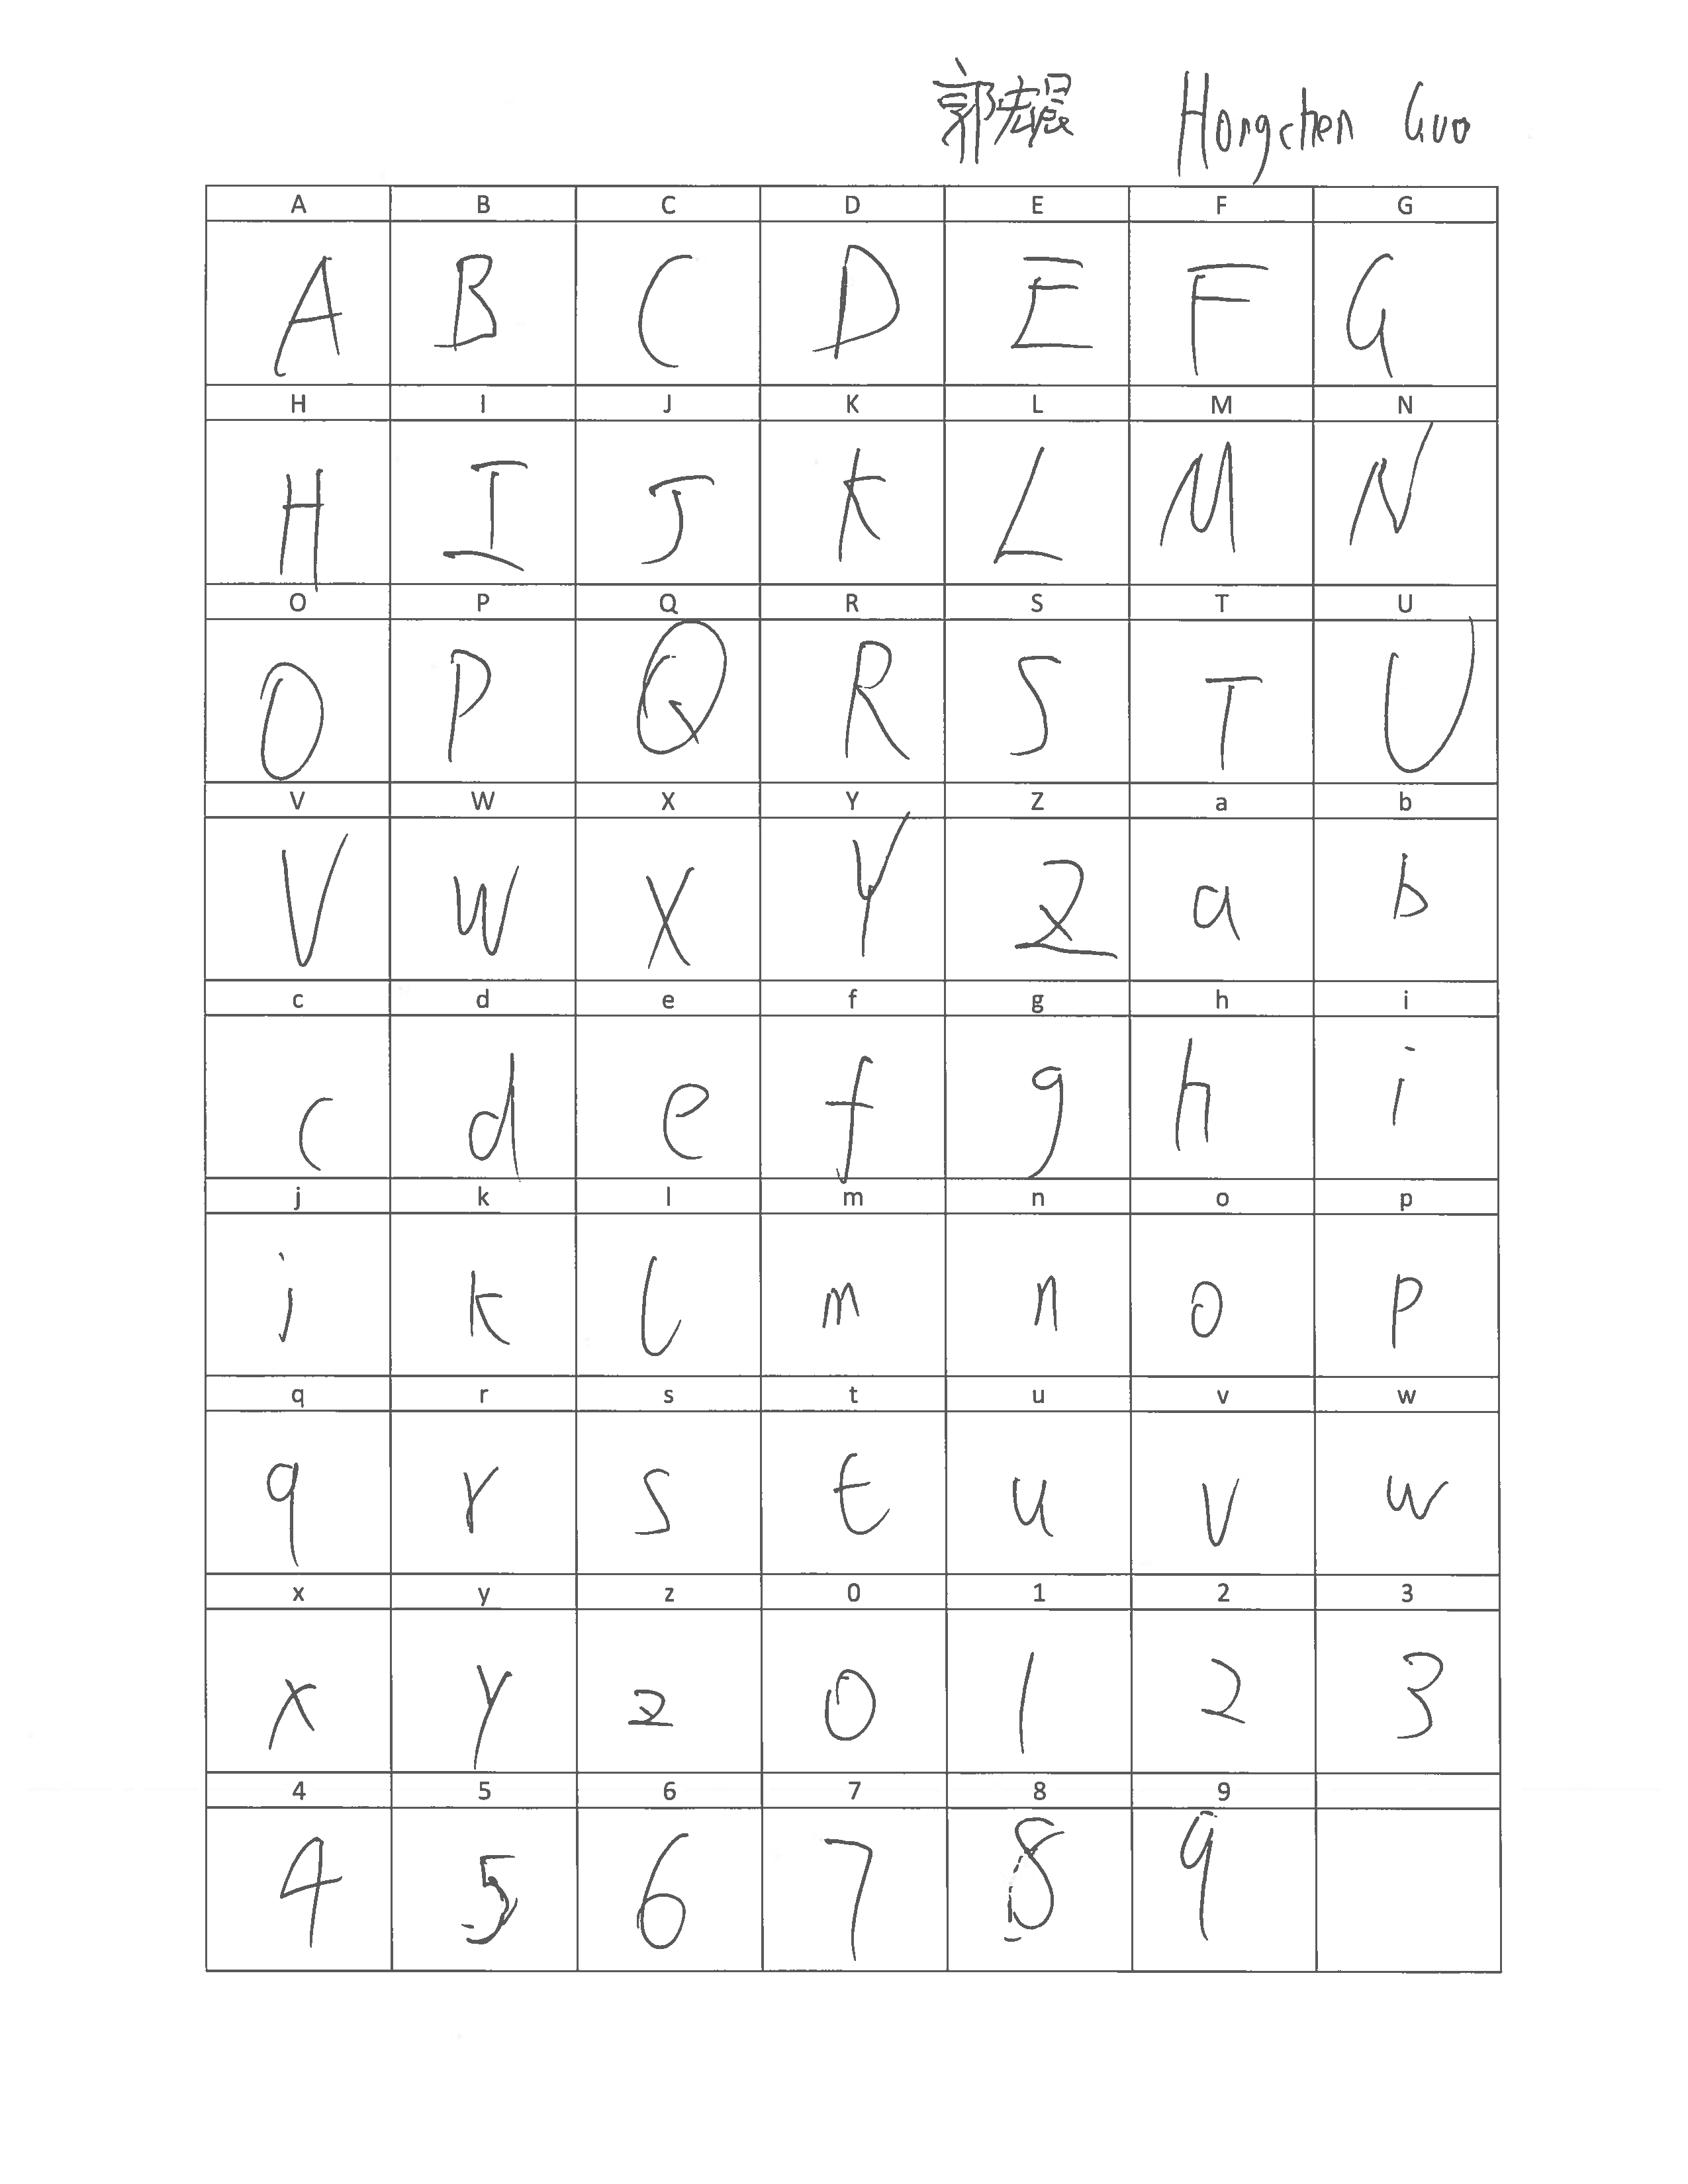 郭宏晨 Hongchen Guo
A B C D E F G
A B C D E F G
H I J K L M N
H I J K L M N
O P Q R S T U
O P Q R S T U
V W X Y Z a b
V W X Y Z a b
c d e f g h i
c d e f g h i
j k l m n o p
j k l m n o p
q r s t u v w
q r s t u v w
x y z 0 1 2 3
x y z 0 1 2 3
4 5 6 7 8 9
4 5 6 7 8 9